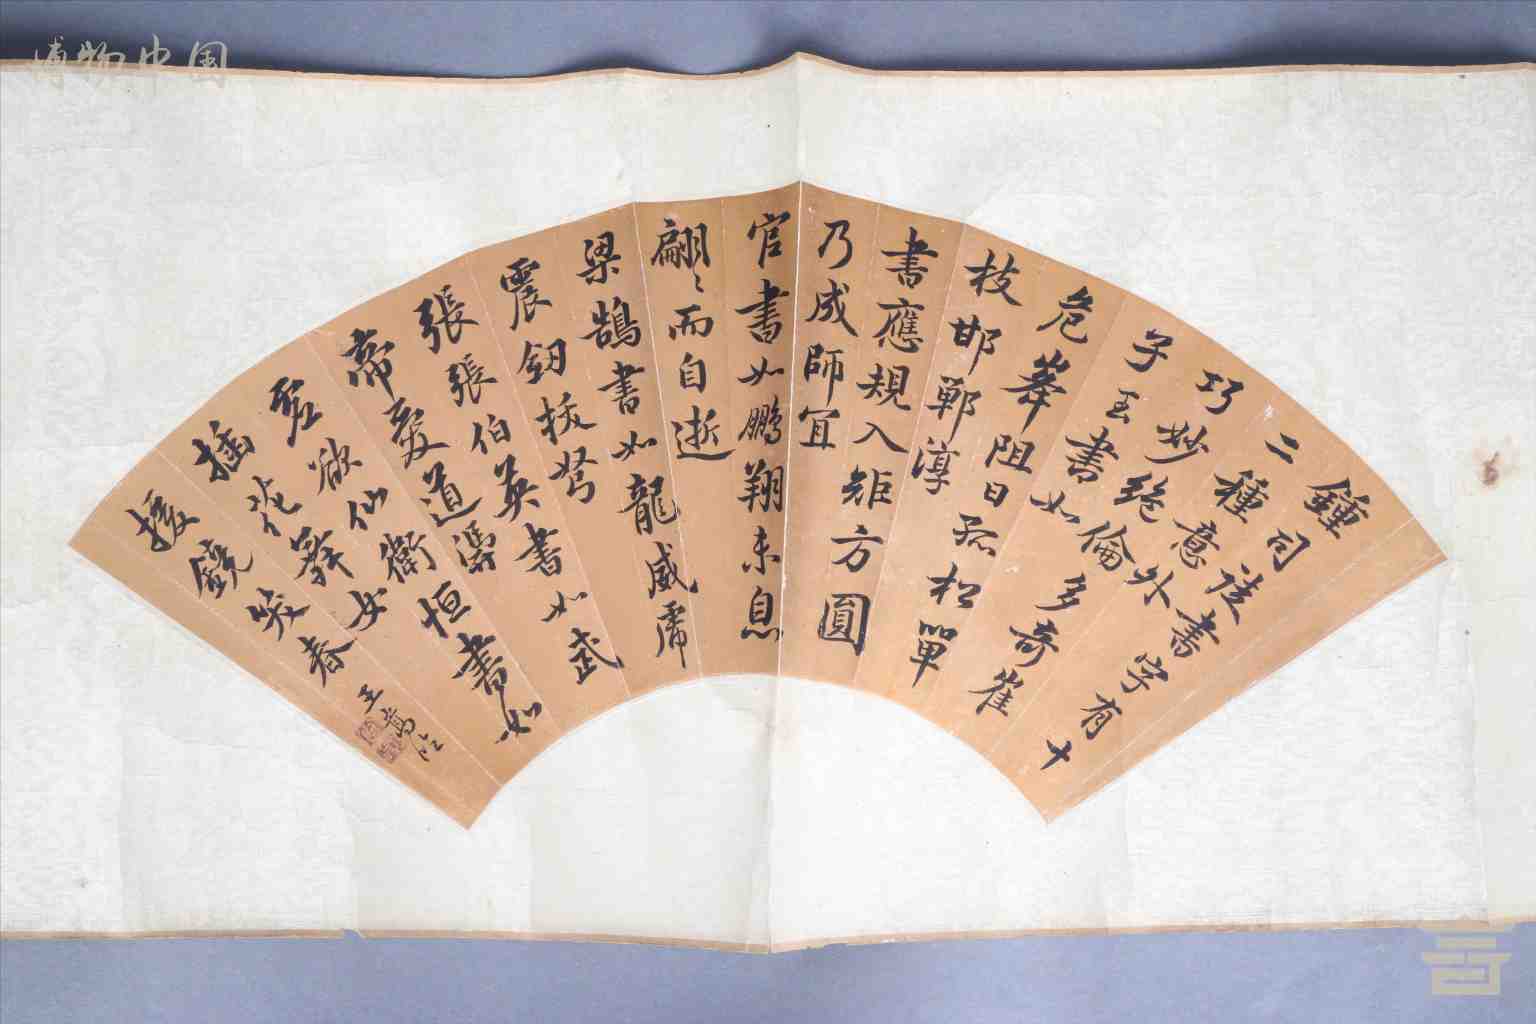 鍾司徒書字有十
二種意外
巧妙絕倫多奇崔
子玉書如
危峯阻日孤松單
枝邯鄲淳
書應規入矩方圓
乃成師宜
官書如鵬翔未息
翩〻而自逝
梁鵠書如龍威虎
震釰拔弩
張張伯英書如武
帝愛道憑
虛欲仙衛恒書如
插花舞女
援鏡笑春
王嵩
博物中国